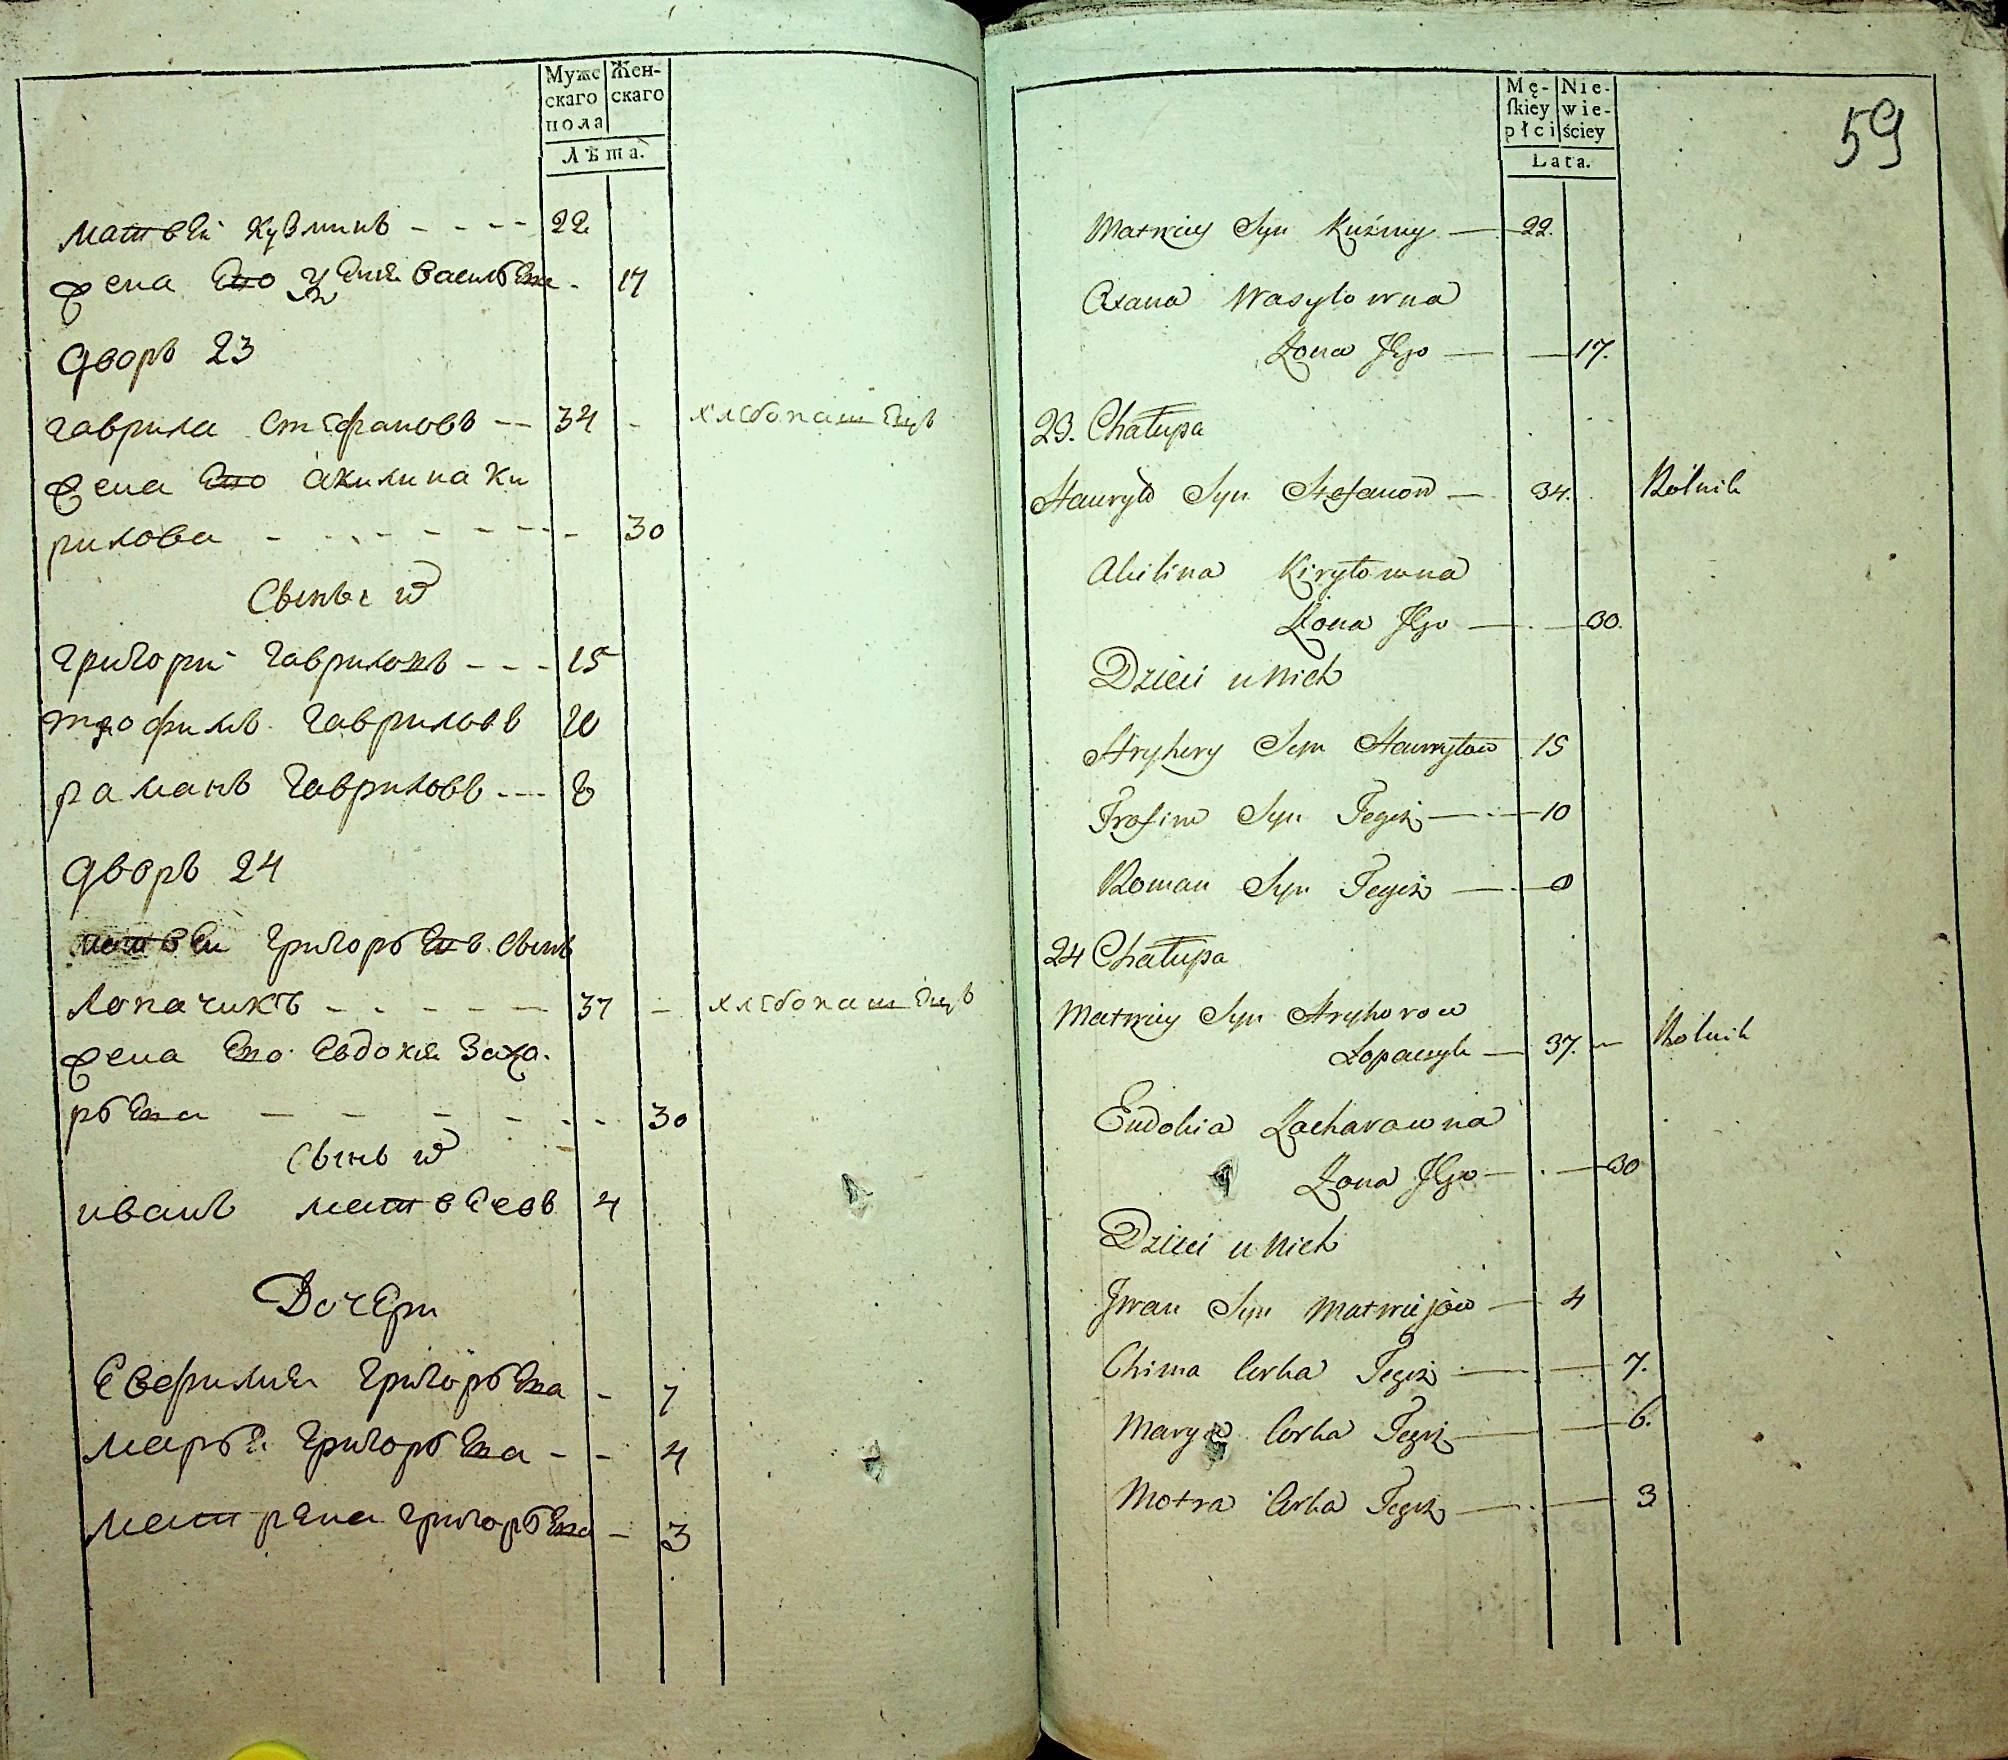 Муже
скаго
пола
Жен-
скаго
Лѣта.
матвей кузминъ - - - - 22
жена его Ксения василева - 17
дворъ 23
гаврила стефановъ - - 34 - хлебопашецъ
жена его акилина ки
рилова - - - - - - - 30
Сыны и
григори гавриловъ - - - 15
трофимъ гавриловъ 10
раманъ гавриловъ - - - 8
дворъ 24
матвеи григорьевъ сынъ
лопачикъ - - - - - 37 - хлебопашецъ
жена его евдокия заха-
рьева - - - - - - 30
Сынъ и
иванъ матвеевъ 4
Дочери
григорьева - 7
марья григорьева - - 4
матрена григорьева - 3
Mę-
skiey
płci
Nie-
wie-
ściey
Lata.
59
Matwiey Syn Kuźmy — 22.
Oxana Wasylowna
Żona Jego — — 17.
23. Chałupa
Hawryło Syn Stefanow — 34. Rolnik
Akilina Kiryłowna
Żona Jego — — 30.
Dzieci u Nich
Hryhery Syn Hawryłow 15
Trofim Syn Tegoż — 10
Roman Syn Tegoż — 8
24 Chałupa
Matwiey Syn Hryhorow
Łopaczyk — 37. — Rolnik
Eudokia Zacharowna
Żona Jego — — 30
Dzieci u Nich
Jwan Syn Matwiejow — 4
Chima Corka Tegoż — — 7.
Marya Corka Tegoż — — 6.
Motra Corka Tegoż — — 3